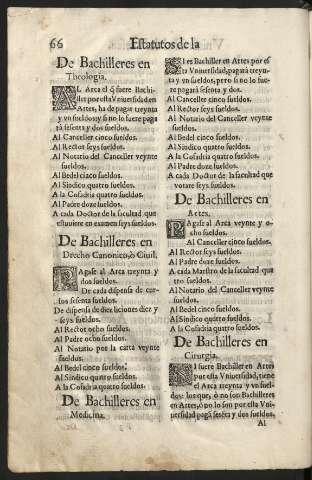 66
Estatutos de la
De Bachilleres en
Theologia.
AL Arca el q̃ fuere Bachi-
ller por esta Vniuersidad en
Artes, ha de pagar treynta
y vn sueldo: y si no lo fuere paga
rà sesenta y dos sueldos.
Al Canceller cinco sueldos.
Al Rector seys sueldos.
Al Notario del Canceller veynte
sueldos.
Al Bedel cinco sueldos.
Al Sindico quatro sueldos.
A la Cofadria quatro sueldos.
Al Padre doze sueldos.
A cada Doctor de la facultad que
estuuiere en examen seys sueldos.
De Bachilleres en
Drecho Canonico, ò Ciuil.
PAgase al Arca treynta y
dos sueldos.
De cada dispensa de cur-
sos sesenta sueldos.
De dispensa de diez liciones diez y
seys sueldos.
Al Rector ocho sueldos.
Al Padre ocho sueldos.
Al Notario por la carta veynte
sueldos.
Al Bedel cinco sueldos.
Al Sindico quatro sueldos.
A la Cofadria quatro sueldos.
De Bachilleres en
Medicina.
SI es Bachiller en Artes por es
ta Vniuersidad, pagarà treyn
ta y vn sueldos, pero si no lo fue-
re pagarà sesenta y dos.
Al Canceller cinco sueldos.
Al Rector seys sueldos.
Al Notario del Canceller veynte
sueldos.
Al Bedel cinco sueldos.
Al Sindico quatro sueldos.
A la Cofadria quatro sueldos.
Al Padre doze sueldos.
A cada Doctor de la facultad que
votare seys sueldos.
De Bachilleres en
Artes.
PAgase al Arca veynte y o-
cho sueldos.
Al Canceller cinco sueldos.
Al Rector seys sueldos.
Al Padre doze sueldos.
A cada Maestro de la facultad qua
tro sueldos.
Al Notario del Canceller veynte
sueldos.
Al Bedel cinco sueldos.
Al Sindico quatro sueldos.
A la Cofadria quatro sueldos.
De Bachilleres en
Cirurgia.
SI fuere Bachiller en Artes
por esta Vniuersidad, tiene
el Arca treynta y vn suel-
dos: los que, ò no son Bachilleres
en Artes, ò lo son por esta Vni-
uersidad pagã sesenta y dos sueldos.
Al